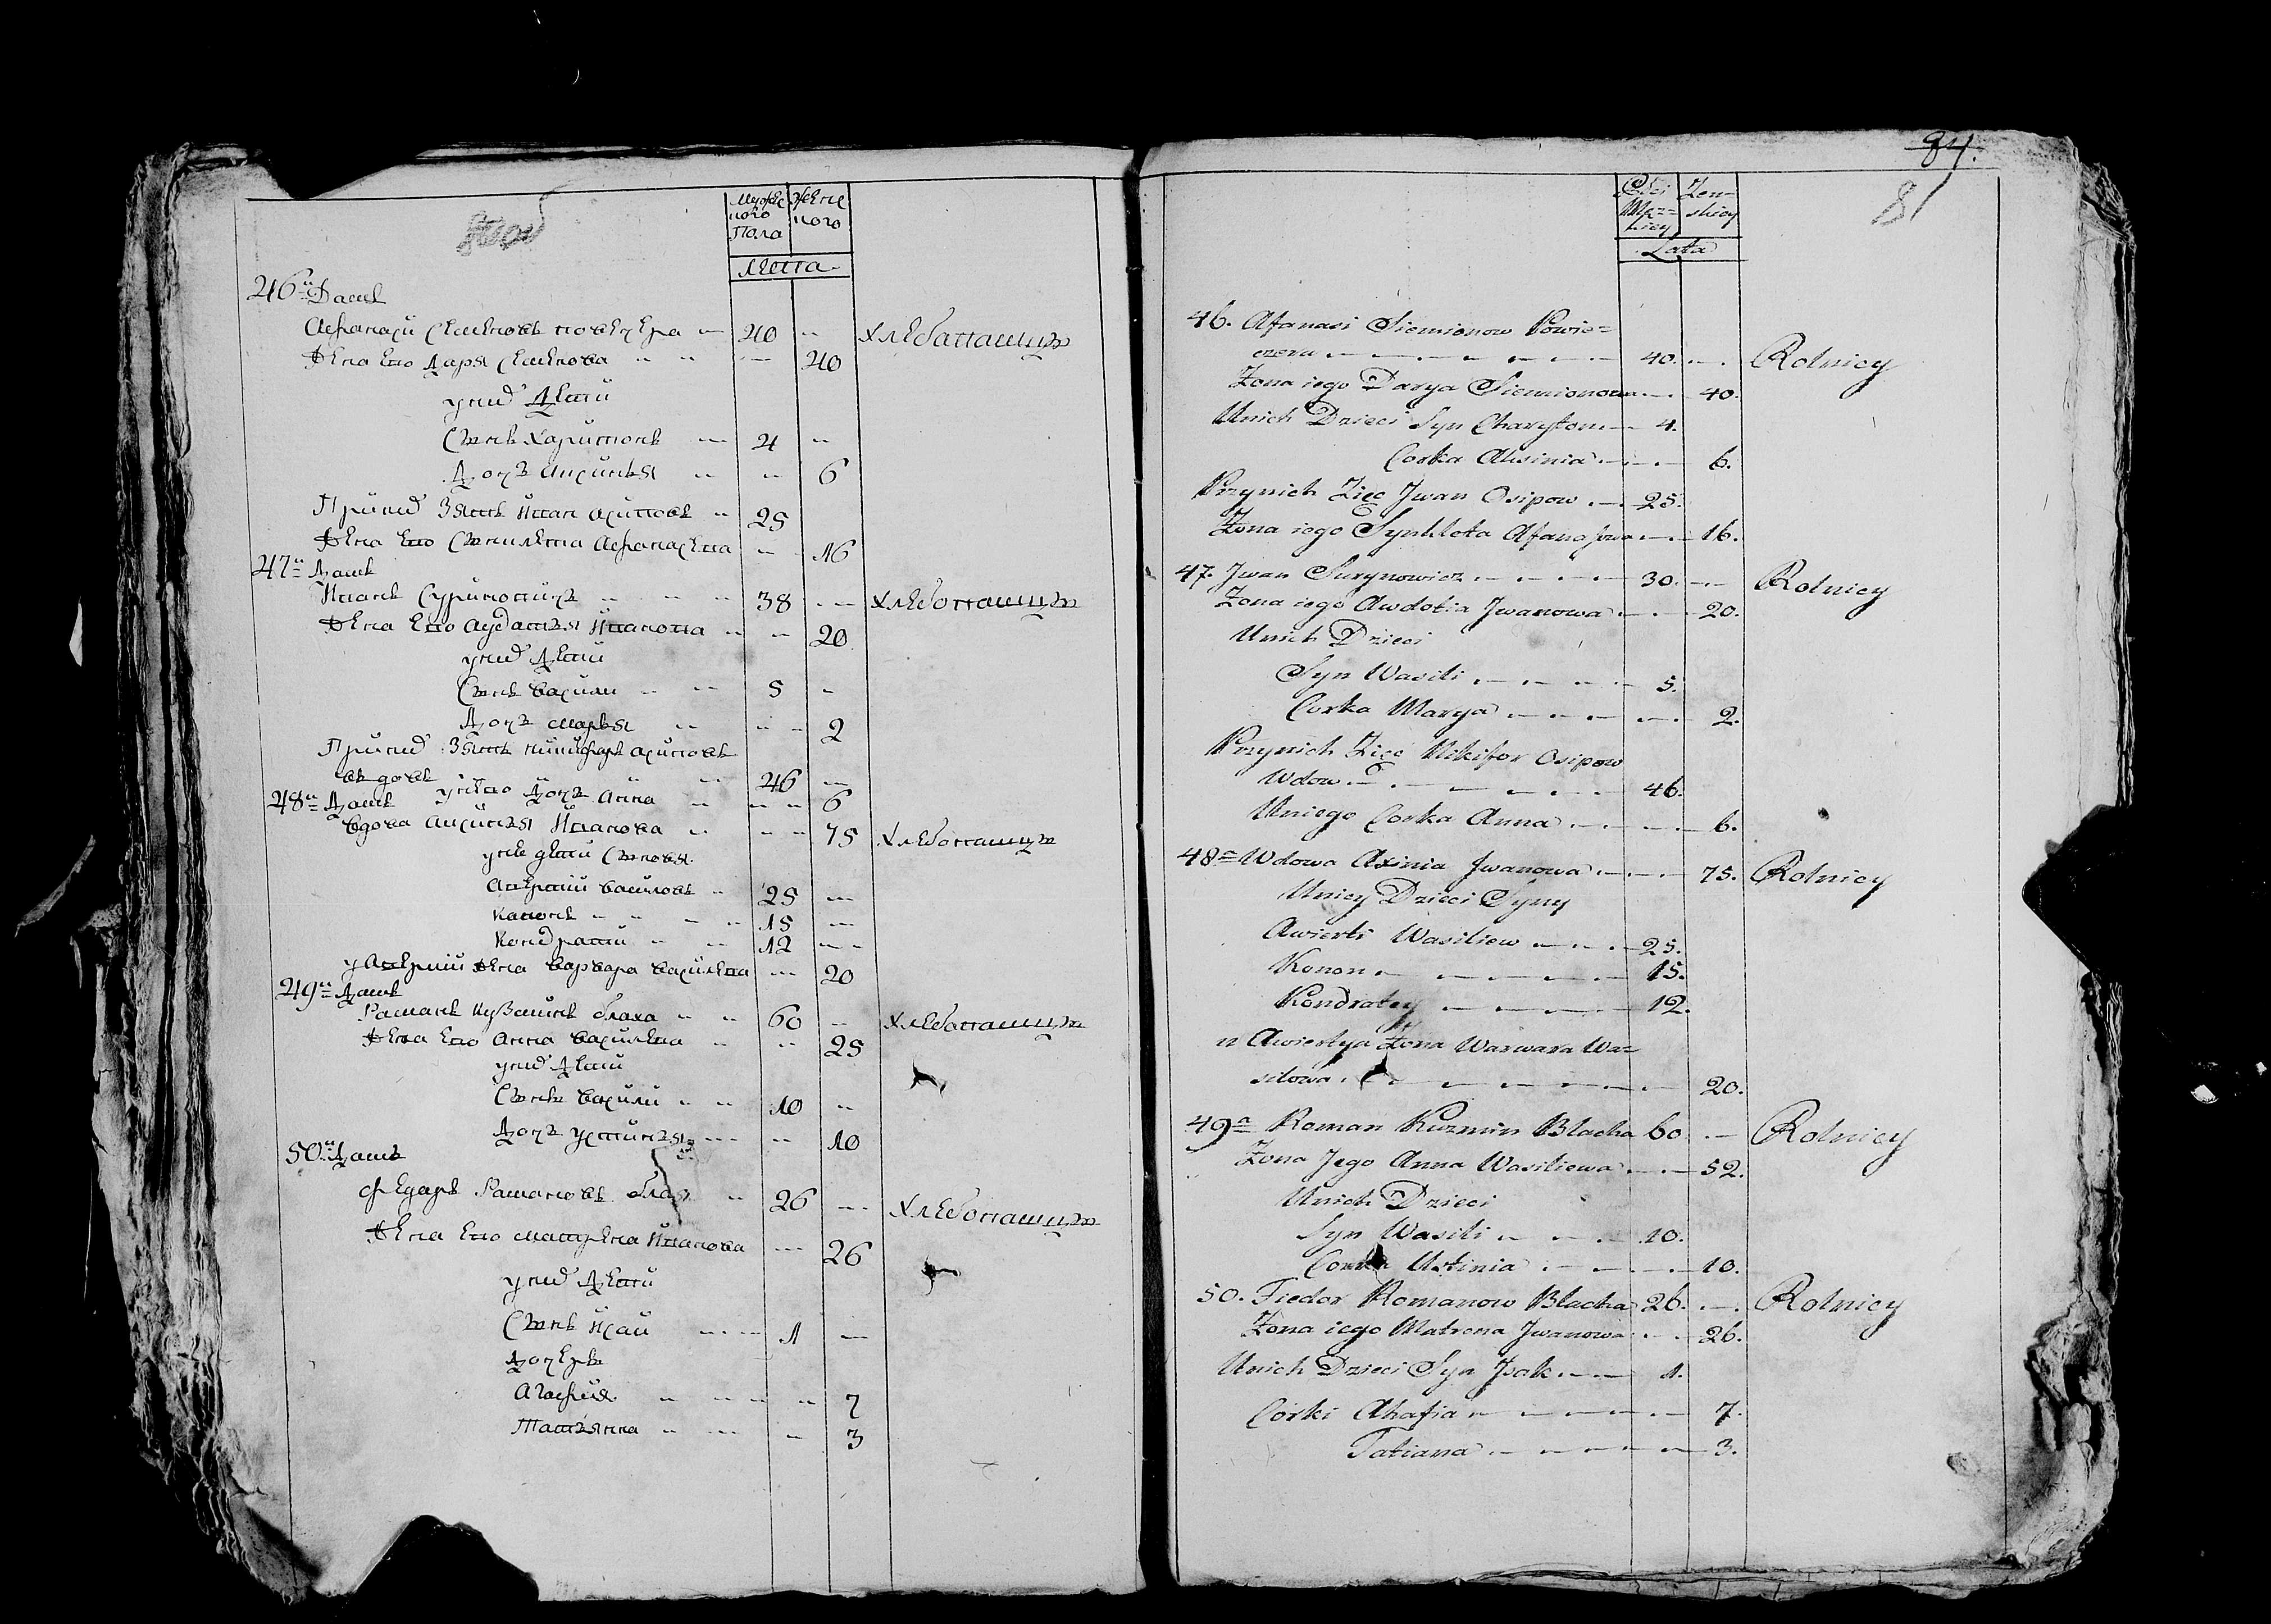 Мужес
кого
Пола
Женс
кого
Лета
46й Дамъ
Афанасй Семеновъ повечера 40
Жена Ево Даря Семенова 40
унид Дети
Сынъ Харитонъ 4
Дочь Аксинья 6
Принид Зять Иван Асиповъ 25
Жена Ево Сынклета Афанасева 16
Хлебапашцы
47й Дамъ
Иванъ Сурикович 38
Жена Ево Аудатья Иванова 20
унид Дети
Сынъ Василй 5
Дочь Марья 2
Принид Зять Никифаръ Асиповъ
въдовъ 46
унево Дочь Анна 6
Хлебопашцы
48й Дамъ
Вдова Аксинья Иванова 75
унеё дети Сыновя
Аверкий Василовъ 25
Канонъ 15
Кондратй 12
у Аверкий жена Варвара Василева 20
Хлебопашцы
49й Дамъ
Раманъ Кузминъ блаха 60
Жена Ево Анна Василева 25
унид Дети
Сынъ Василй 10
Дочь Устинья 10
Хлебопашцы
50й Дамъ
Федаръ Рамановъ 26
Жена Ево Матрена Иванова 26
унид Дети
Сынъ Исай 1
Дочеры
Агафия 7
Татьянна 3
Хлебопашцы
84.
81
Płci
Męz=
kiey
Żen=
skiey
Lata
46. Afanasi Siemionow Powie=
czera 40. Rolnicy
Żona iego Darya Siemionowa 40.
Unich Dzieci Syn Charyton 4.
Corka Aksinia 6.
Przynich Zięć Jwan Osipow 25.
Żona iego Synkleta Afanasowa 16.
47. Jwan Surynowicz 30. Rolnicy
Żona iego Awdotia Jwanowa 20.
Unich Dzieci
Syn Wasili 5.
Corka Marya 2.
Przynich Zięć Nikifor Osipow
Wdow. 46.
Uniego Corka Anna 6.
48a Wdowa Axinia Jwanowa 75. Rolnicy
Unicy Dzieci Syny
Awierki Wasiliew 25.
Konon 15.
Kondratey 12.
u Awierkya Żona Warwara Wa=
silowa 20.
49a Roman Kuzmin Blacha 60 Rolnicy
Żona Jego Anna Wasiliewa 52.
Unich Dzieci
Syn Wasili 10.
Corka Ustinia 10.
50. Fiedor Romanow Blacha 26. Rolnicy
Żona iego Matrena Jwanowa 26.
Unich Dzieci Syn Jsak 1.
Córki Ahafia 7.
Tatiana 3.